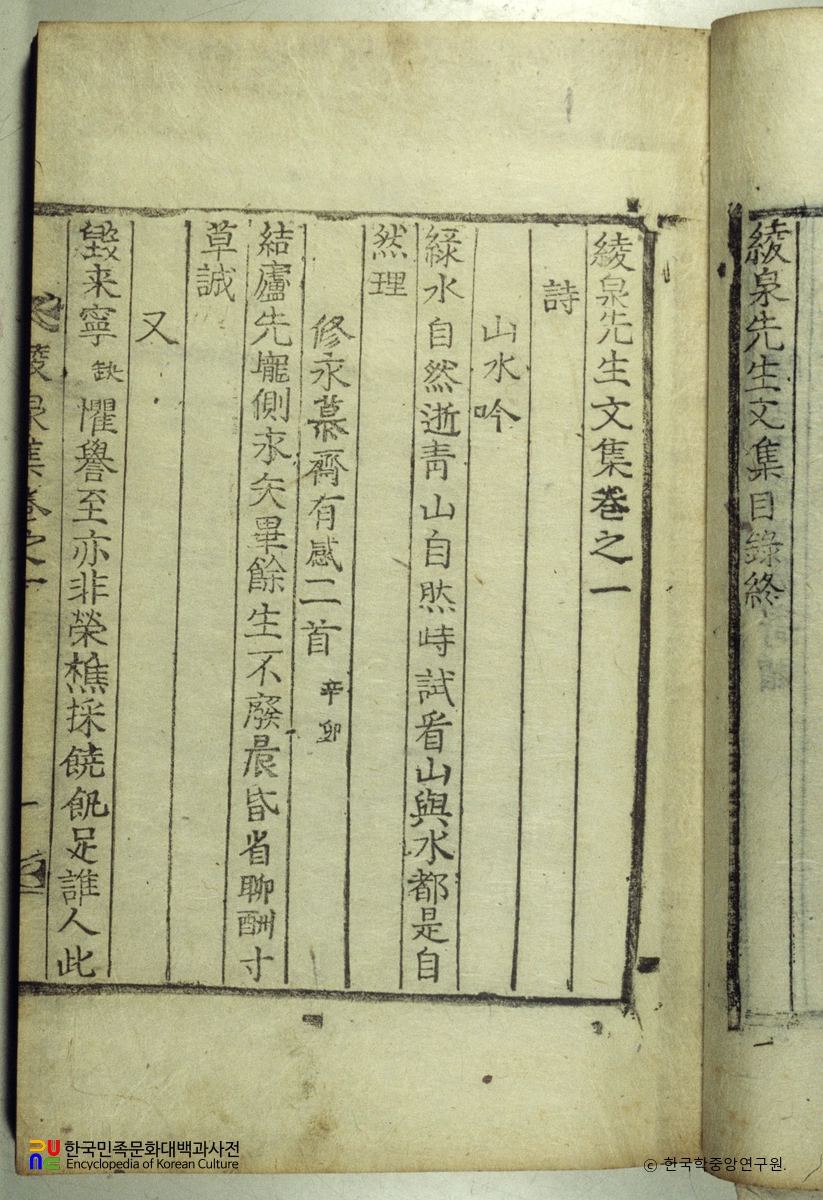 綾泉先生文集目錄終
綾泉先生文集卷之一
詩
山水吟
綠水自然逝靑山自然峙試看山與水都是自
然理
修永慕齋有感二首 辛卯
結廬先壠側永矢畢餘生不廢晨昏省聊酬寸
草誠
又
毀来寧 缺 懼譽至亦非榮樵採饒飢足誰人此
綾泉集卷之一
한국민족문화대백과사전
Encyclopedia of Korean Culture
© 한국학중앙연구원.